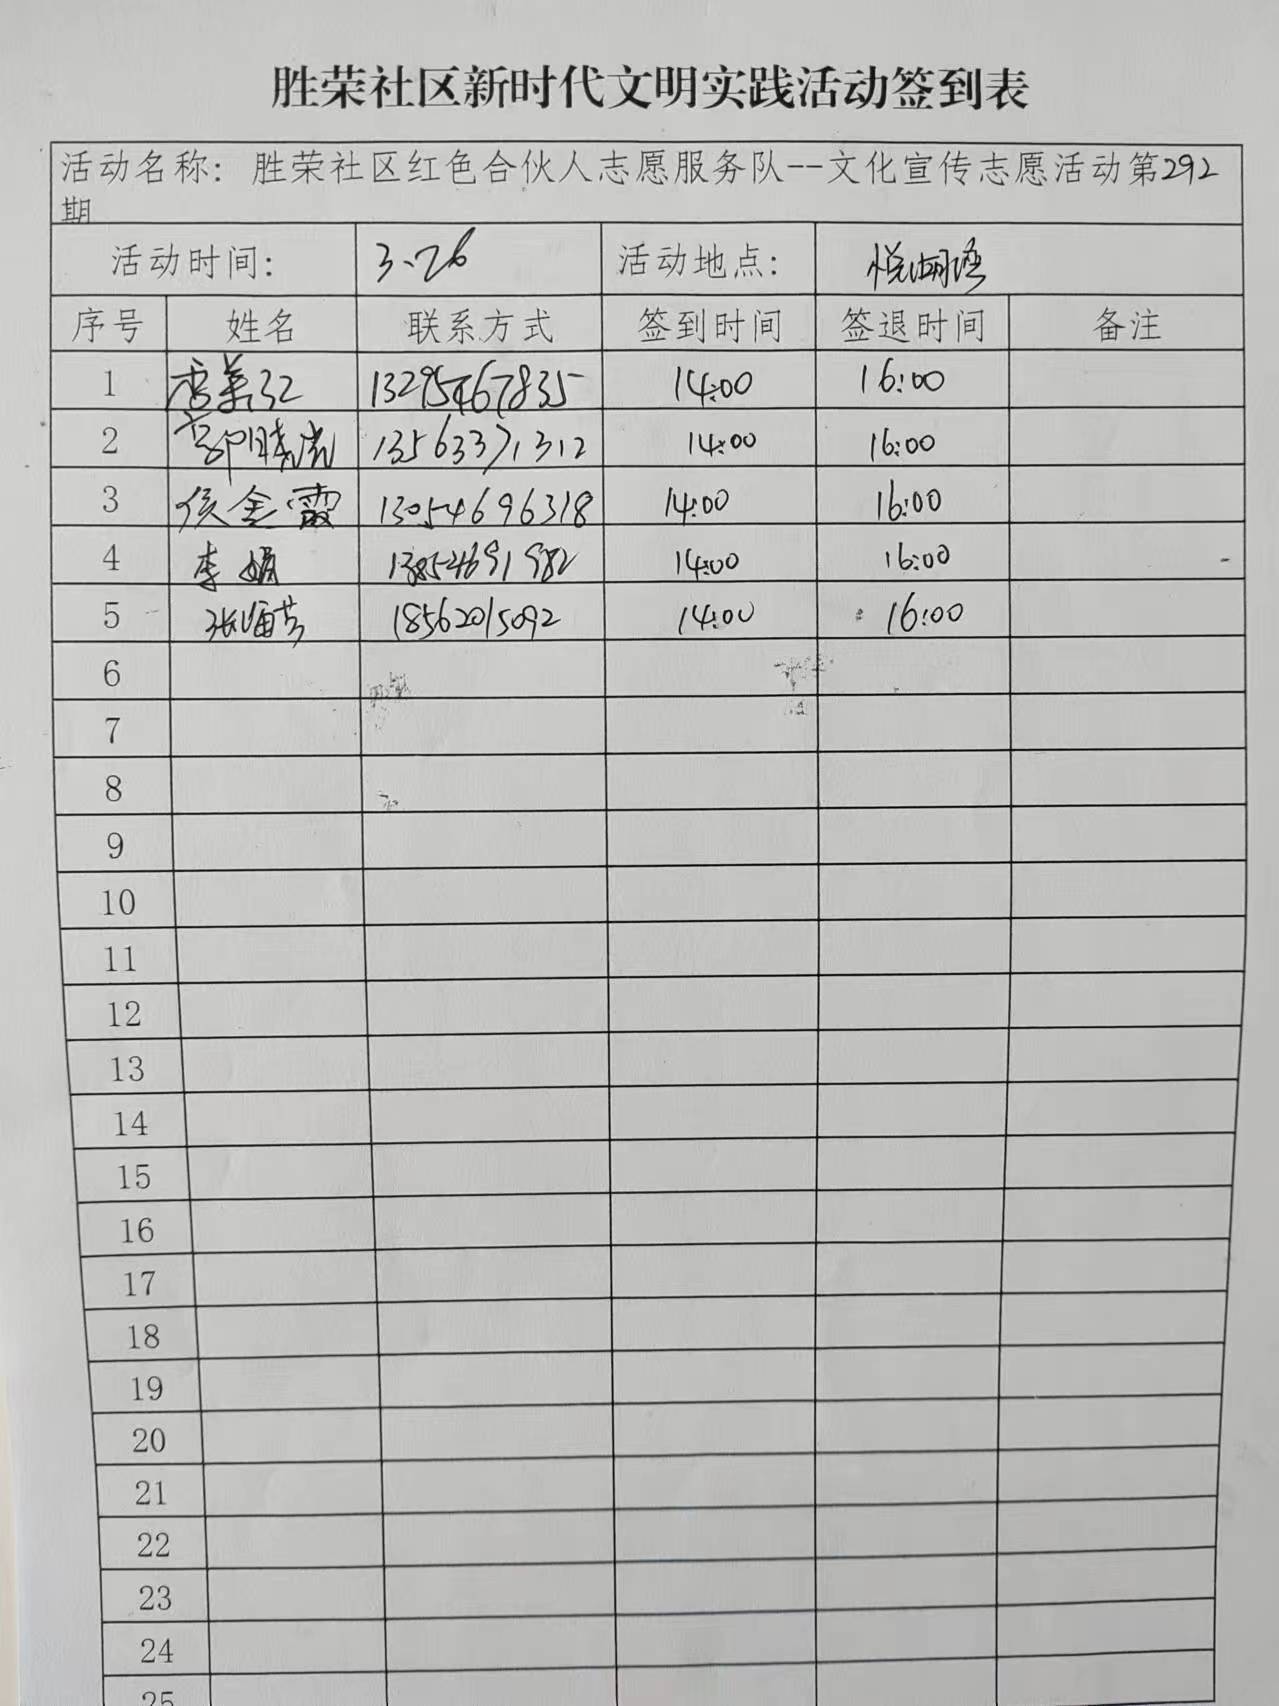 胜荣社区新时代文明实践活动签到表
活动名称：胜荣社区红色合伙人志愿服务队--文化宣传志愿活动第292
期
活动时间： 3.26 活动地点： 悦湖语
序号 姓名 联系方式 签到时间 签退时间 备注
1 13295467835 14:00 16:00
2 13563371312 14:00 16:00
3 侯金霞 13054696318 14:00 16:00
4 李娟 13854691982 14:00 16:00
5 18562015092 14:00 16:00
6
7
8
9
10
11
12
13
14
15
16
17
18
19
20
21
22
23
24
25